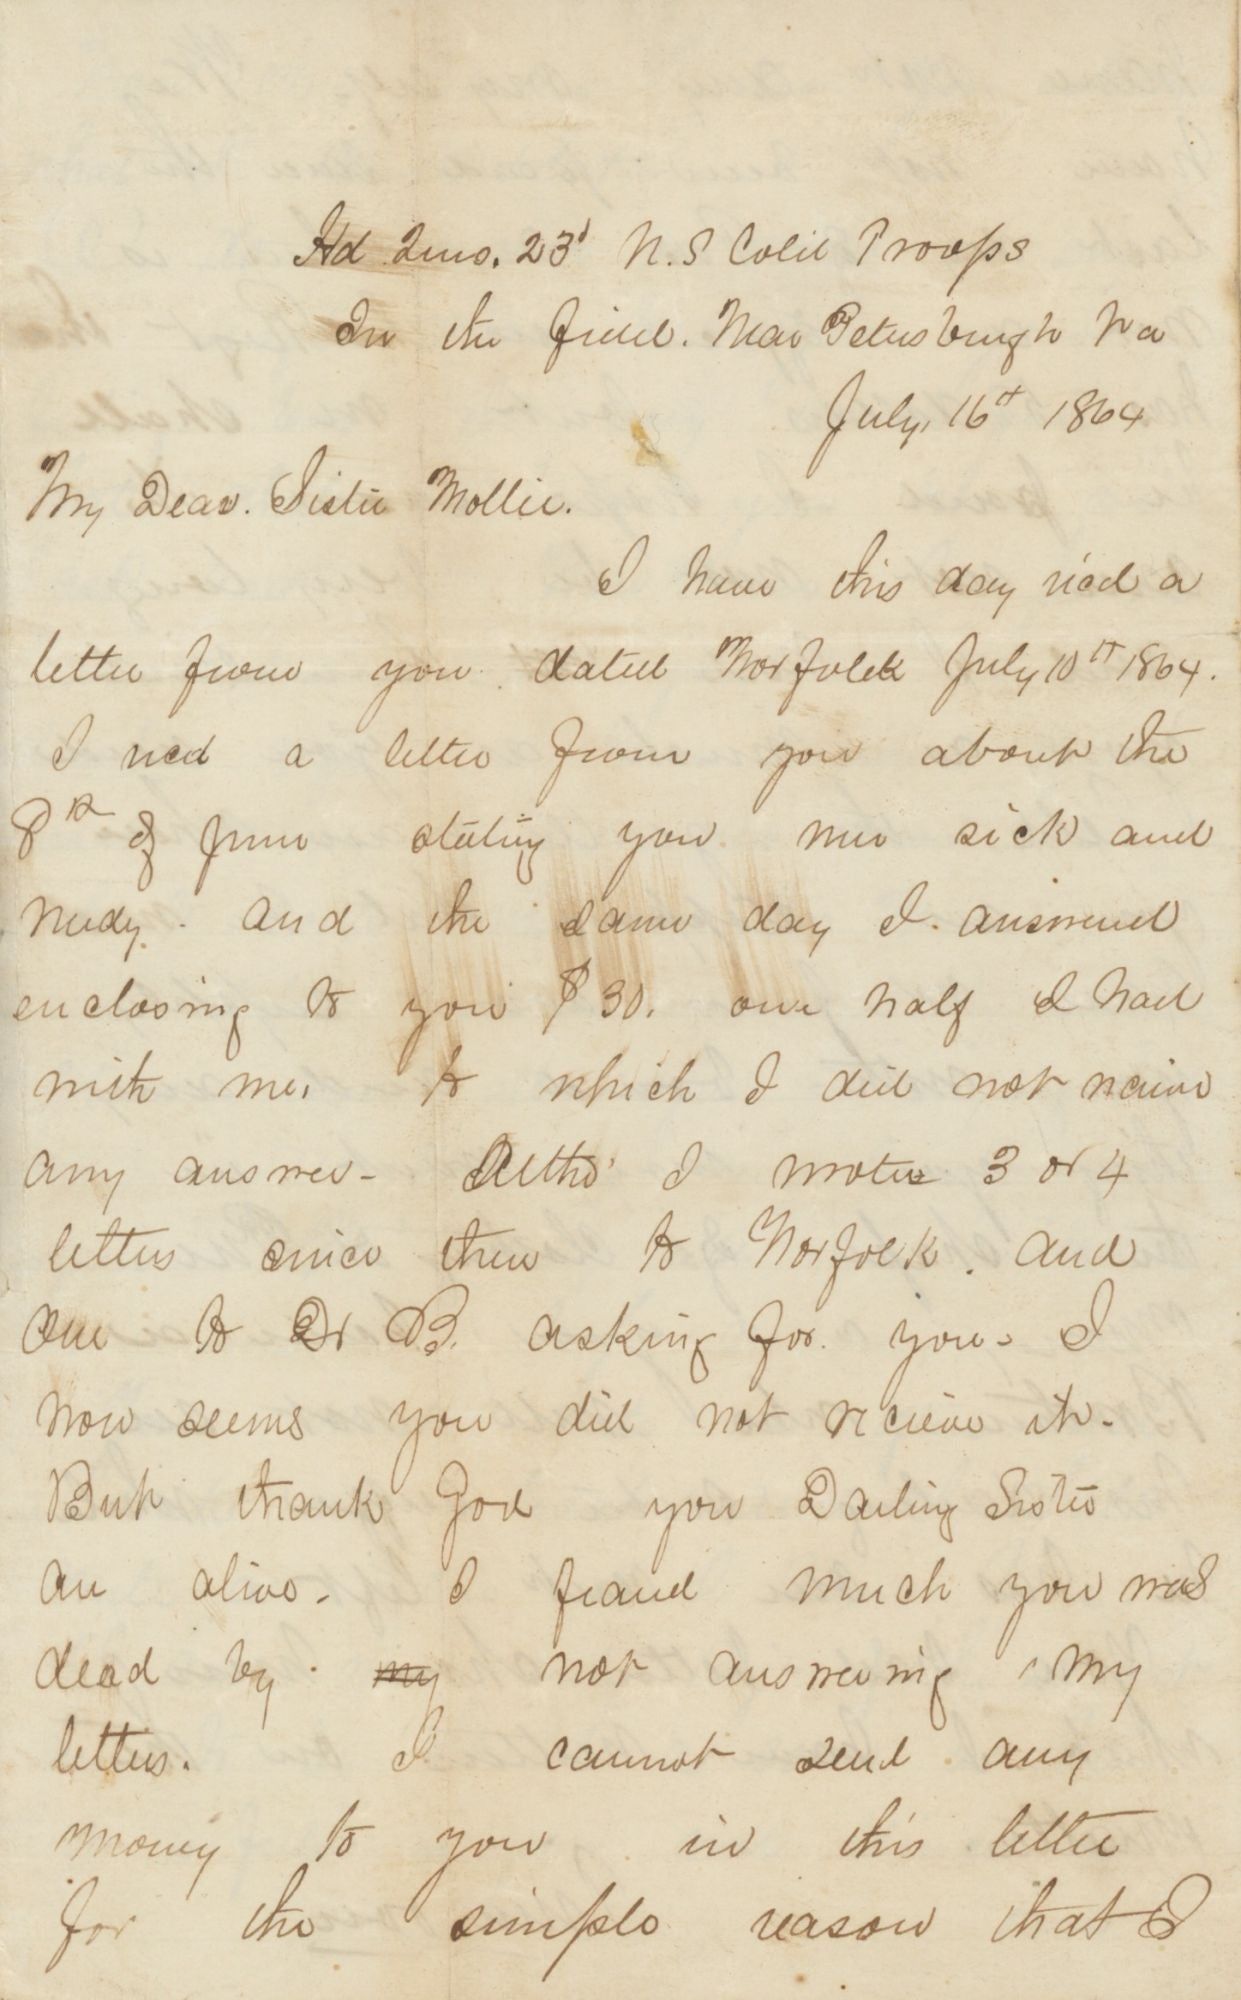 Hd Qurs. 23d U.S Cold Troops
In the field. Near Petersburgh Va
July, 16th 1864
My Dear. Sister Mollie.
I have this day recd a
letter from you dated Norfolk July 10th 1864.
I recd a letter from you about the
8th of June stating you were sick and
needy. and the same day I. answered
enclosing to you $30. one half I had
with me. to which I did not recieve
any answer - Altho' I wrote 3 or 4
letters since then to Norfolk. and
one to Dr B. asking for. you - I
now seems you did not recieve it -
But thank God you Darling Sister
are alive - I feared much you was
dead by my not answering my
letters. I cannot send any
money to you in this letter
for the simple reason that I